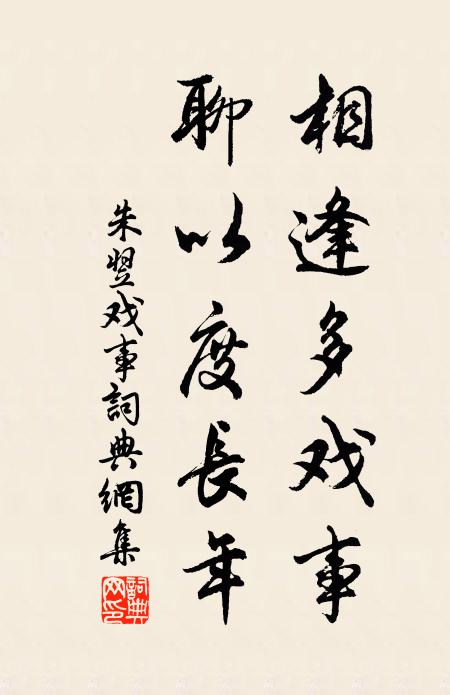 相逢多戏事
聊以度長年
朱翌戏事詞典網集
詞典网印